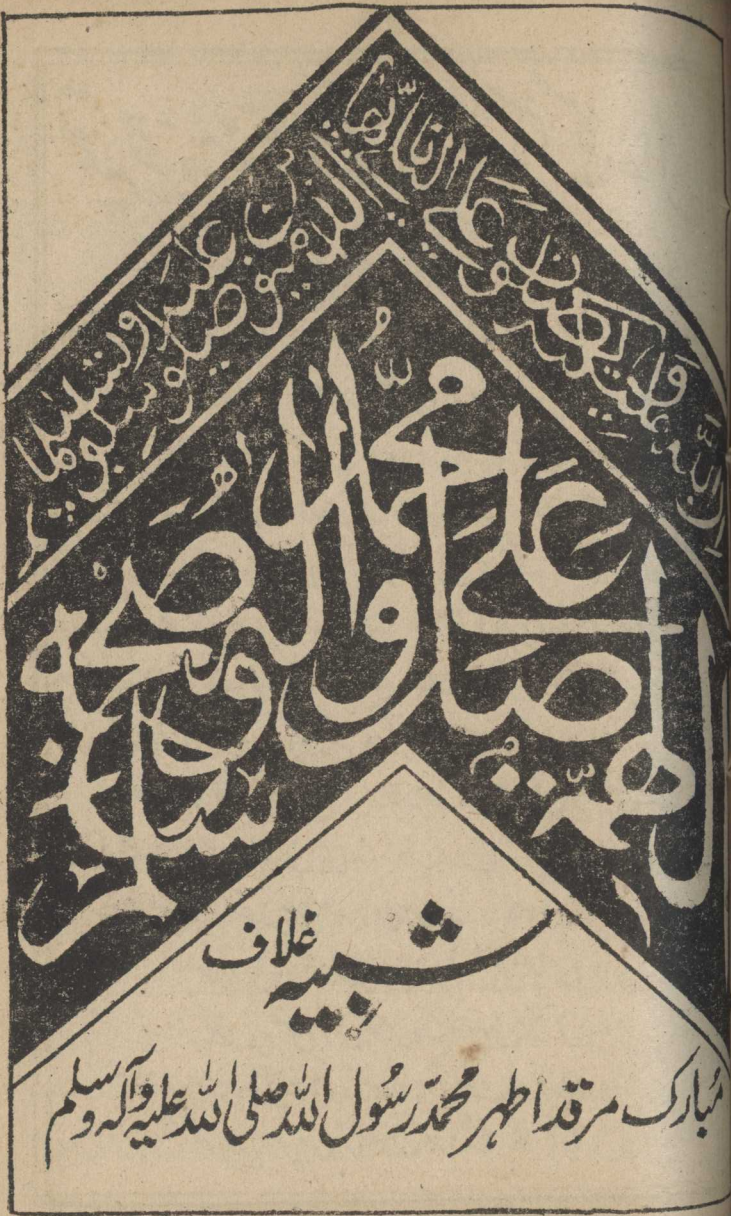 ان الله وملئكته يصلون على النبي يايها
الذين امنوا صلوا عليه وسلموا تسليما
اللهمّ صلّ على محمّد واله وصحبه وسلم
شبیہ غلاف
مُبارک مرقد اطہر محمدّ رسُول اللہ صلی اللہ علیہ وآلہ وسلم